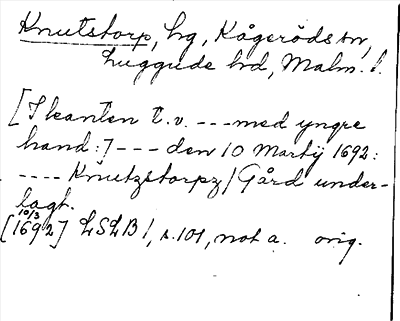 Knutstorp, hg, Kågeröds sn,
Luggude hd, Malm. l.
[I kanten t.v. --- med yngre
hand:] --- den 10 Martij 1692:
---- Knutzstorpz / Gård under-
lagt.
10/3
[1692] LSLB 1, s. 101, not a. orig.